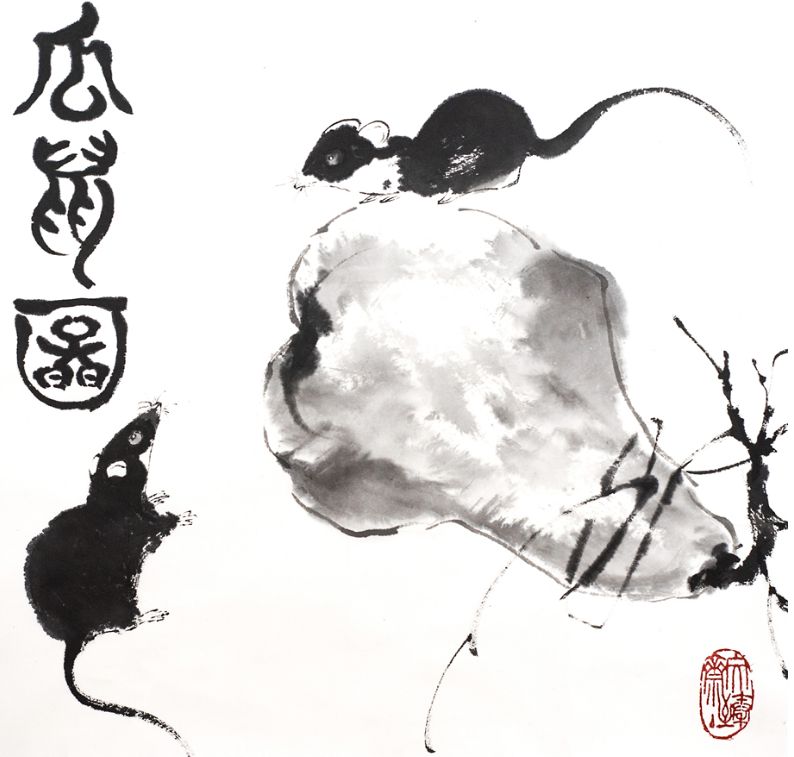 瓜鼠圖